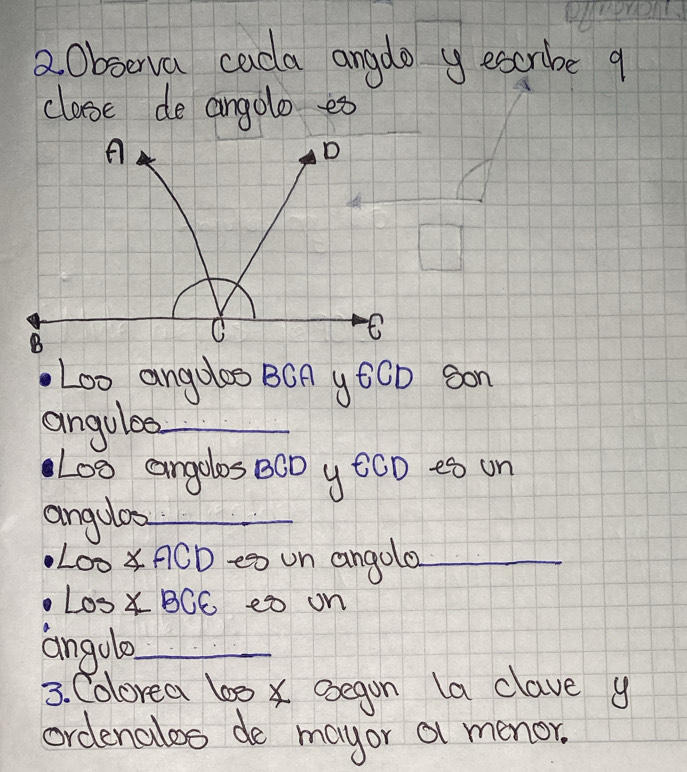 2.Observa cada angulo y escribe q
clase de angulo es
A
D
B
C
E
•Los angulos BCA y ECD son
angulos
•Los angulos BCD y ECD es un
angulos
•Los ∡ ACD es un angulo
•Los ∡ BCE es un
angulo
3.Colorea los ∡ segun la clave y
ordenalos de mayor a menor.